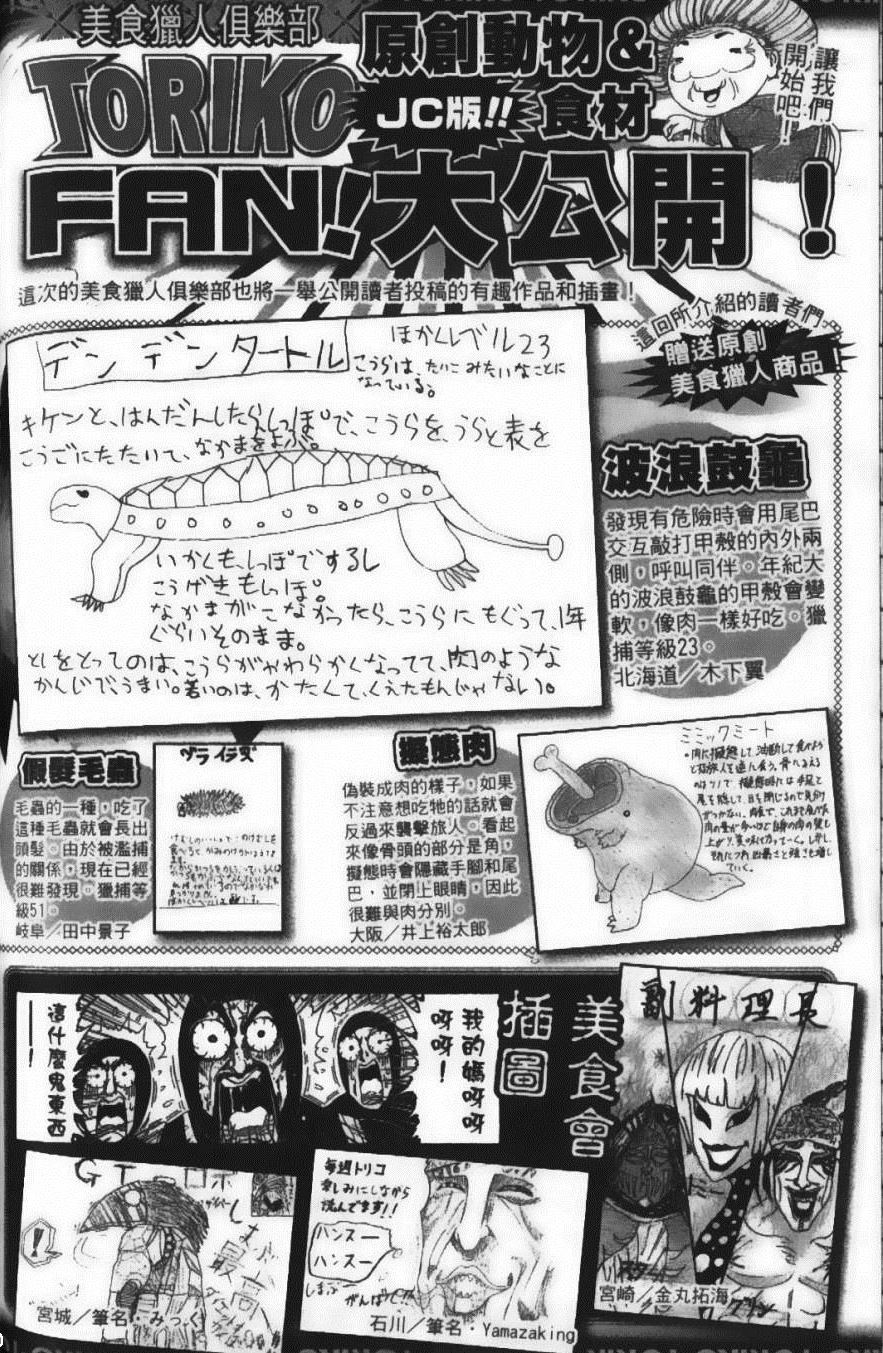 美食獵人俱樂部
TORIKO
FAN!
原創動物&
JC版!! 食材
大公開!
讓我們
開始吧!
這次的美食獵人俱樂部也將一舉公開讀者投稿的有趣作品和插畫!
這回所介紹的讀者們
贈送原創
美食獵人商品!
デンデンタートル
ほかくレベル23
こうらは、たいこみたいなことに
なっている。
キケンと、はんだんしたら、しっぽで、こうらを、うらと表を
こうごにたたいて、なかまをよぶ。
いかくも、しっぽでするし
こうげきもしっぽ。
なかまがこなかったら、こうらにもぐって、1年
ぐらいそのまま。
としをとってのは、こうらがやわらかくなってて、肉のような
かんじで、うまい。若いのは、かたくて、くえたもんじゃない。
波浪鼓龜
發現有危險時會用尾巴
交互敲打甲殼的內外兩
側,呼叫同伴。年紀大
的波浪鼓龜的甲殼會變
軟,像肉一樣好吃。獵
捕等級23。
北海道/木下翼
假髮毛蟲
毛蟲的一種,吃了
這種毛蟲就會長出
頭髮。由於被濫捕
的關係,現在已經
很難發現。獵捕等
級51。
岐阜/田中景子
擬態肉
偽裝成肉的樣子,如果
不注意想吃牠的話就會
反過來襲擊旅人。看起
來像骨頭的部分是角,
擬態時會隱藏手腳和尾
巴,並閉上眼睛,因此
很難與肉分別。
大阪/井上裕太郎
ミミックミート
美食會
插圖
我的媽呀呀
呀呀!
這什麼鬼東西
——!
副料理長
宮崎/金丸拓海
GTロボ
最高
!
宮城/筆名・みっく
毎週トリコ
楽しみにしながら
読んでます!!
ハンスー
ハンスー
石川/筆名・Yamazaking